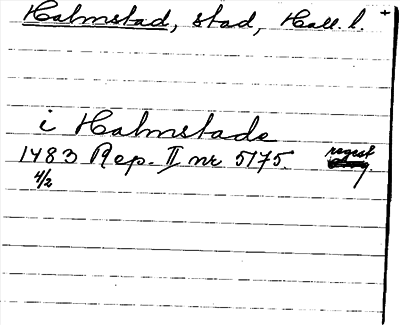 Halmstad, stad, Hall. l. +
i Halmstade
1483 Rep. II nr 5175. regest
4/2